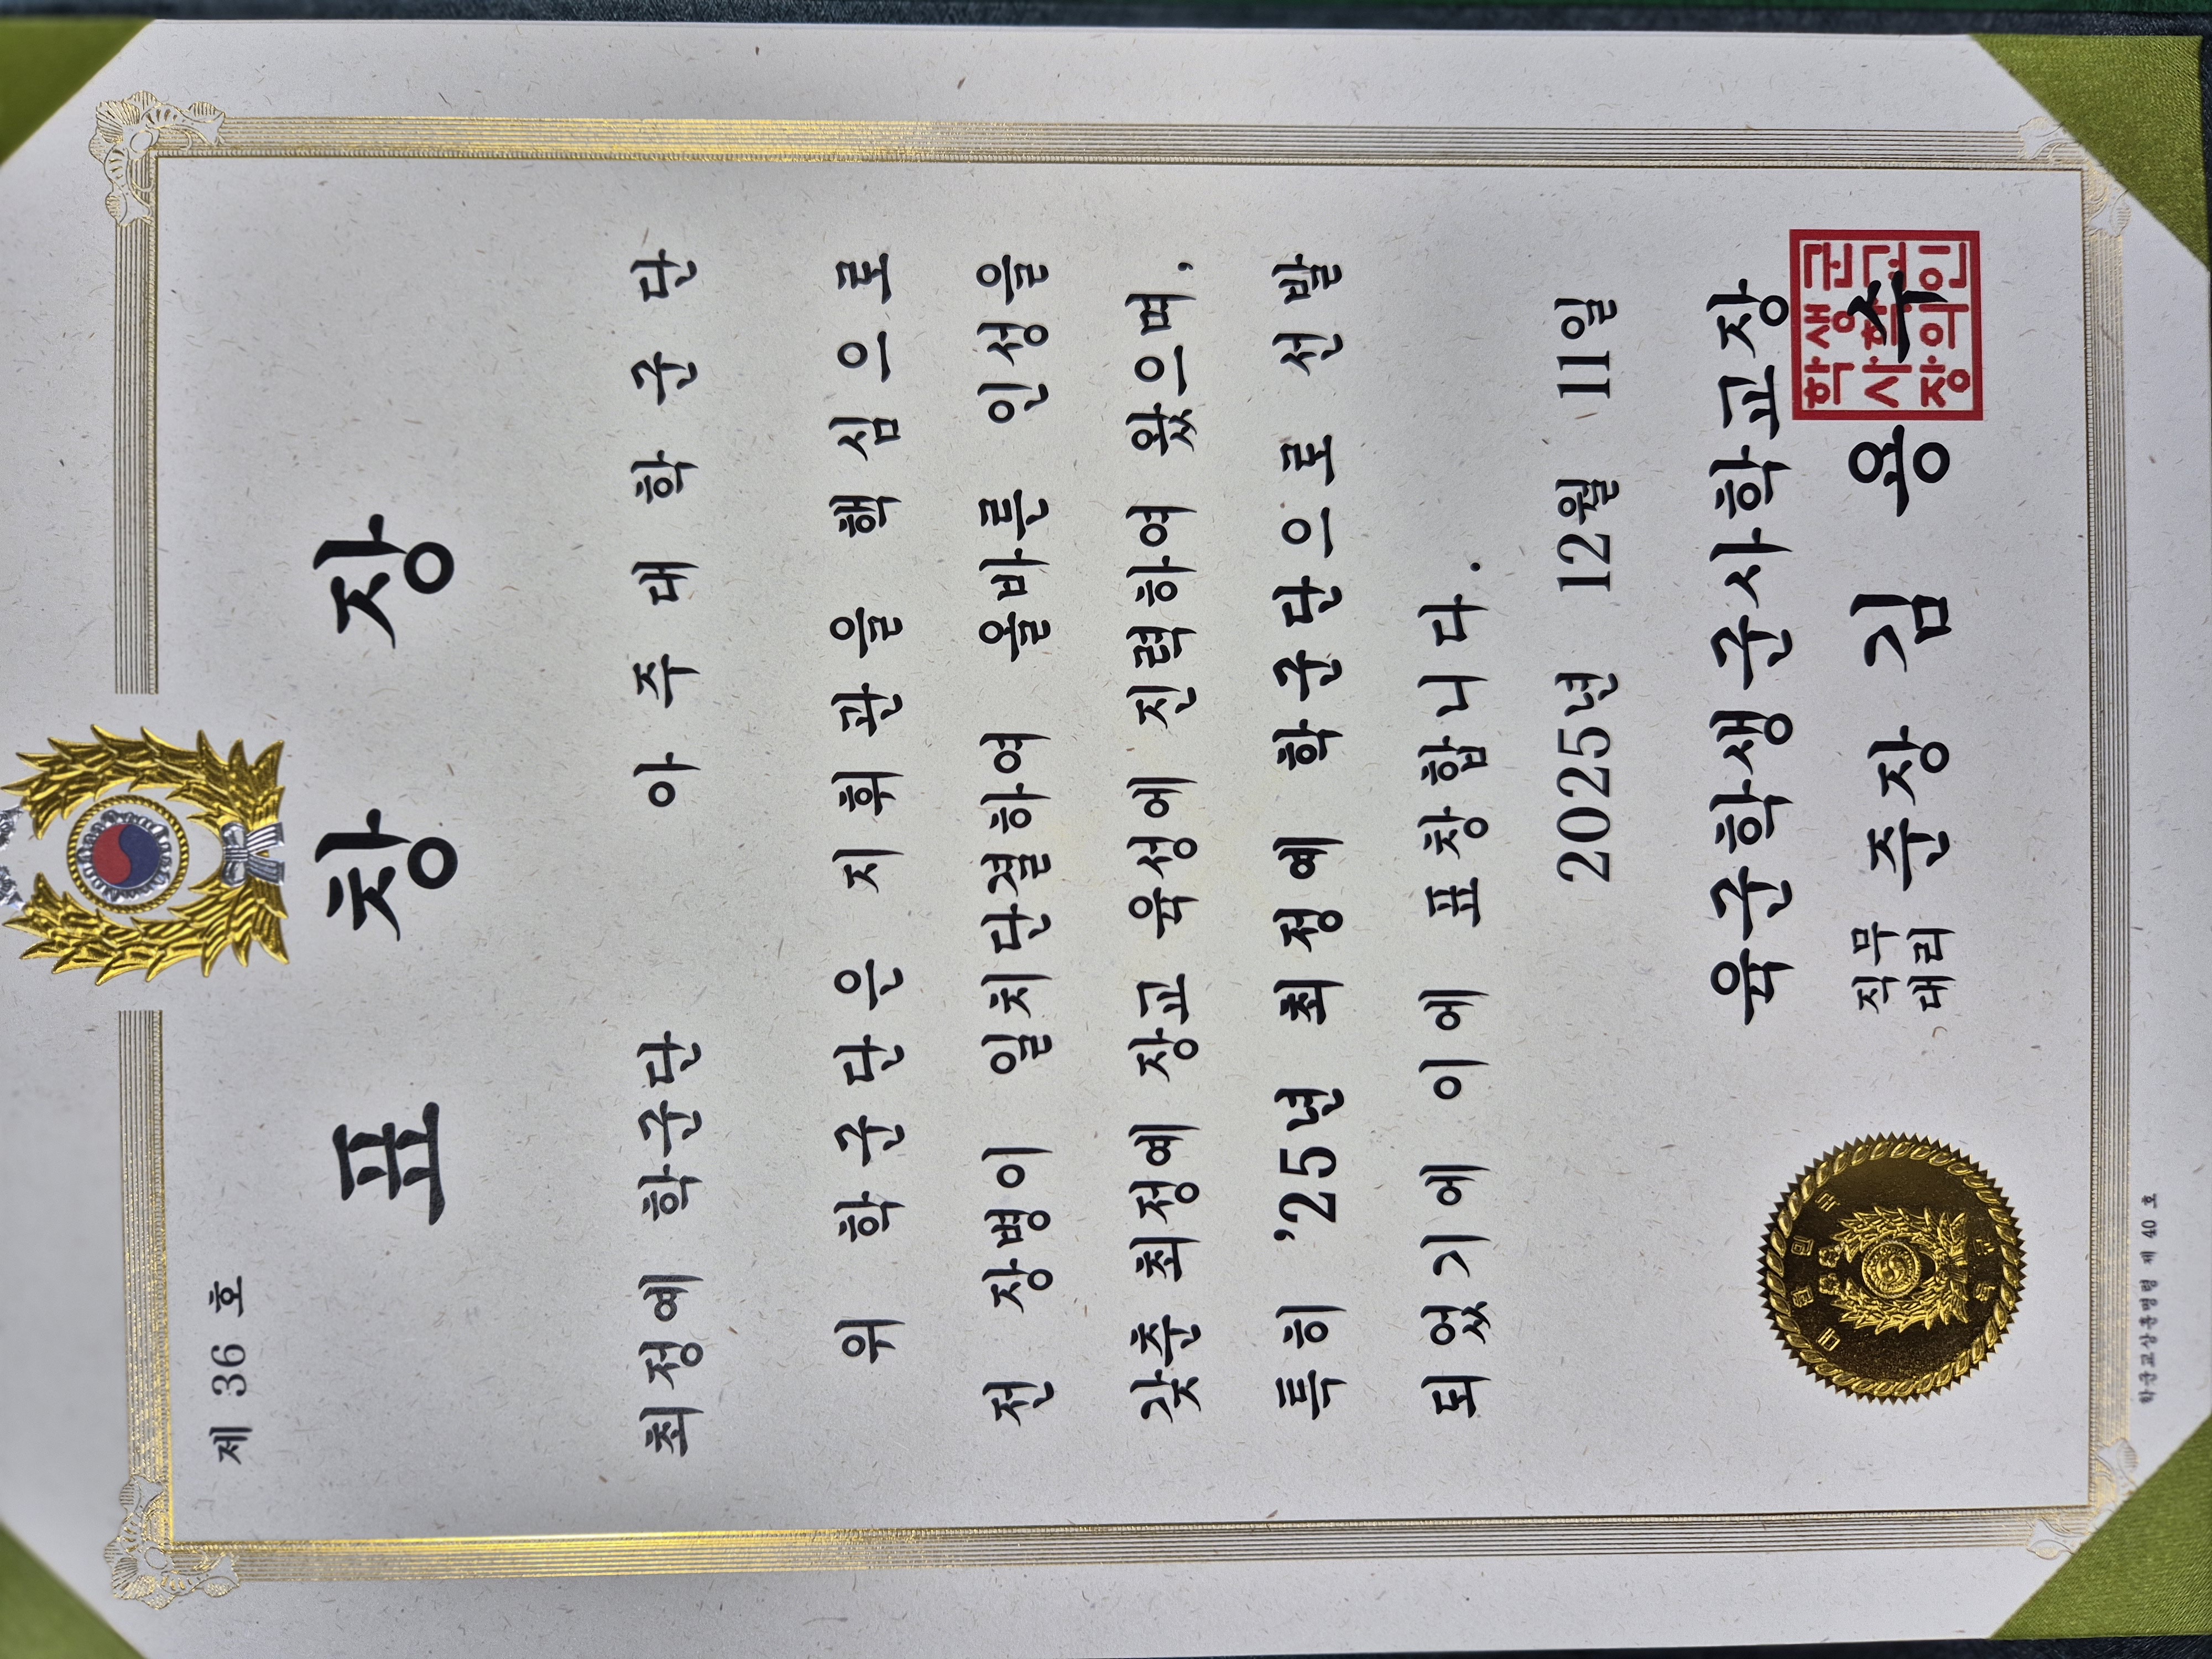 제 36 호
표 창 장
최정예 학군단 아 주 대 학 군 단
위 학 군 단 은 지 휘 관 을 핵 심 으 로
전 장병이 일치단결하여 올바른 인성을
갖춘 최정예 장교 육성에 진력하여 왔으며,
특히 '25년 최정예 학군단으로 선발
되었기에 이에 표창합니다.
2025년 12월 11일
육군학생군사학교장
직무대리 준장 김 용 주
학생군사학교장의인
대한민국육군
학군교상훈명령 제 40 호